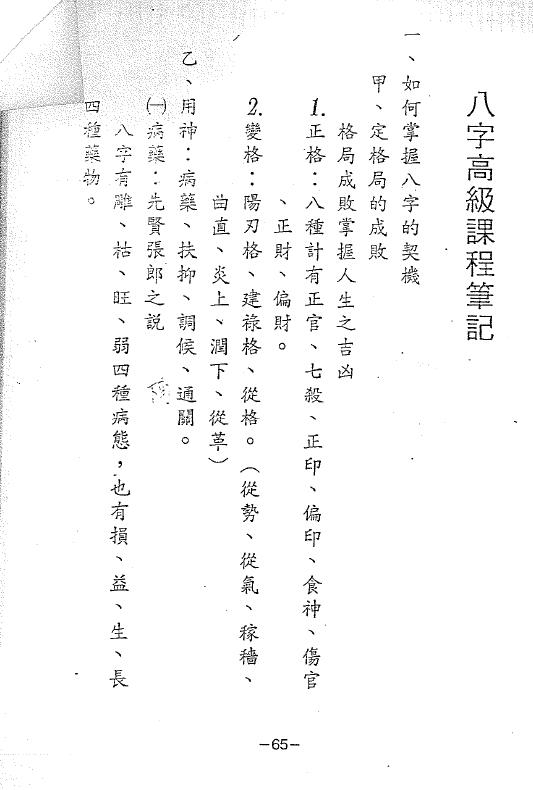 八字高級課程筆記
一、如何掌握八字的契機
甲、定格局的成敗
格局成敗掌握人生之吉凶
1.正格：八種計有正官、七殺、正印、偏印、食神、傷官
、正財、偏財。
2.變格：陽刃格、建祿格、從格。（從勢、從氣、稼穡、
曲直、炎上、潤下、從革）
乙、用神：病藥、扶抑、調候、通關。
㈠病藥：先賢張郎之說
八字有雕、枯、旺、弱四種病態，也有損、益、生、長
四種藥物。
—65—